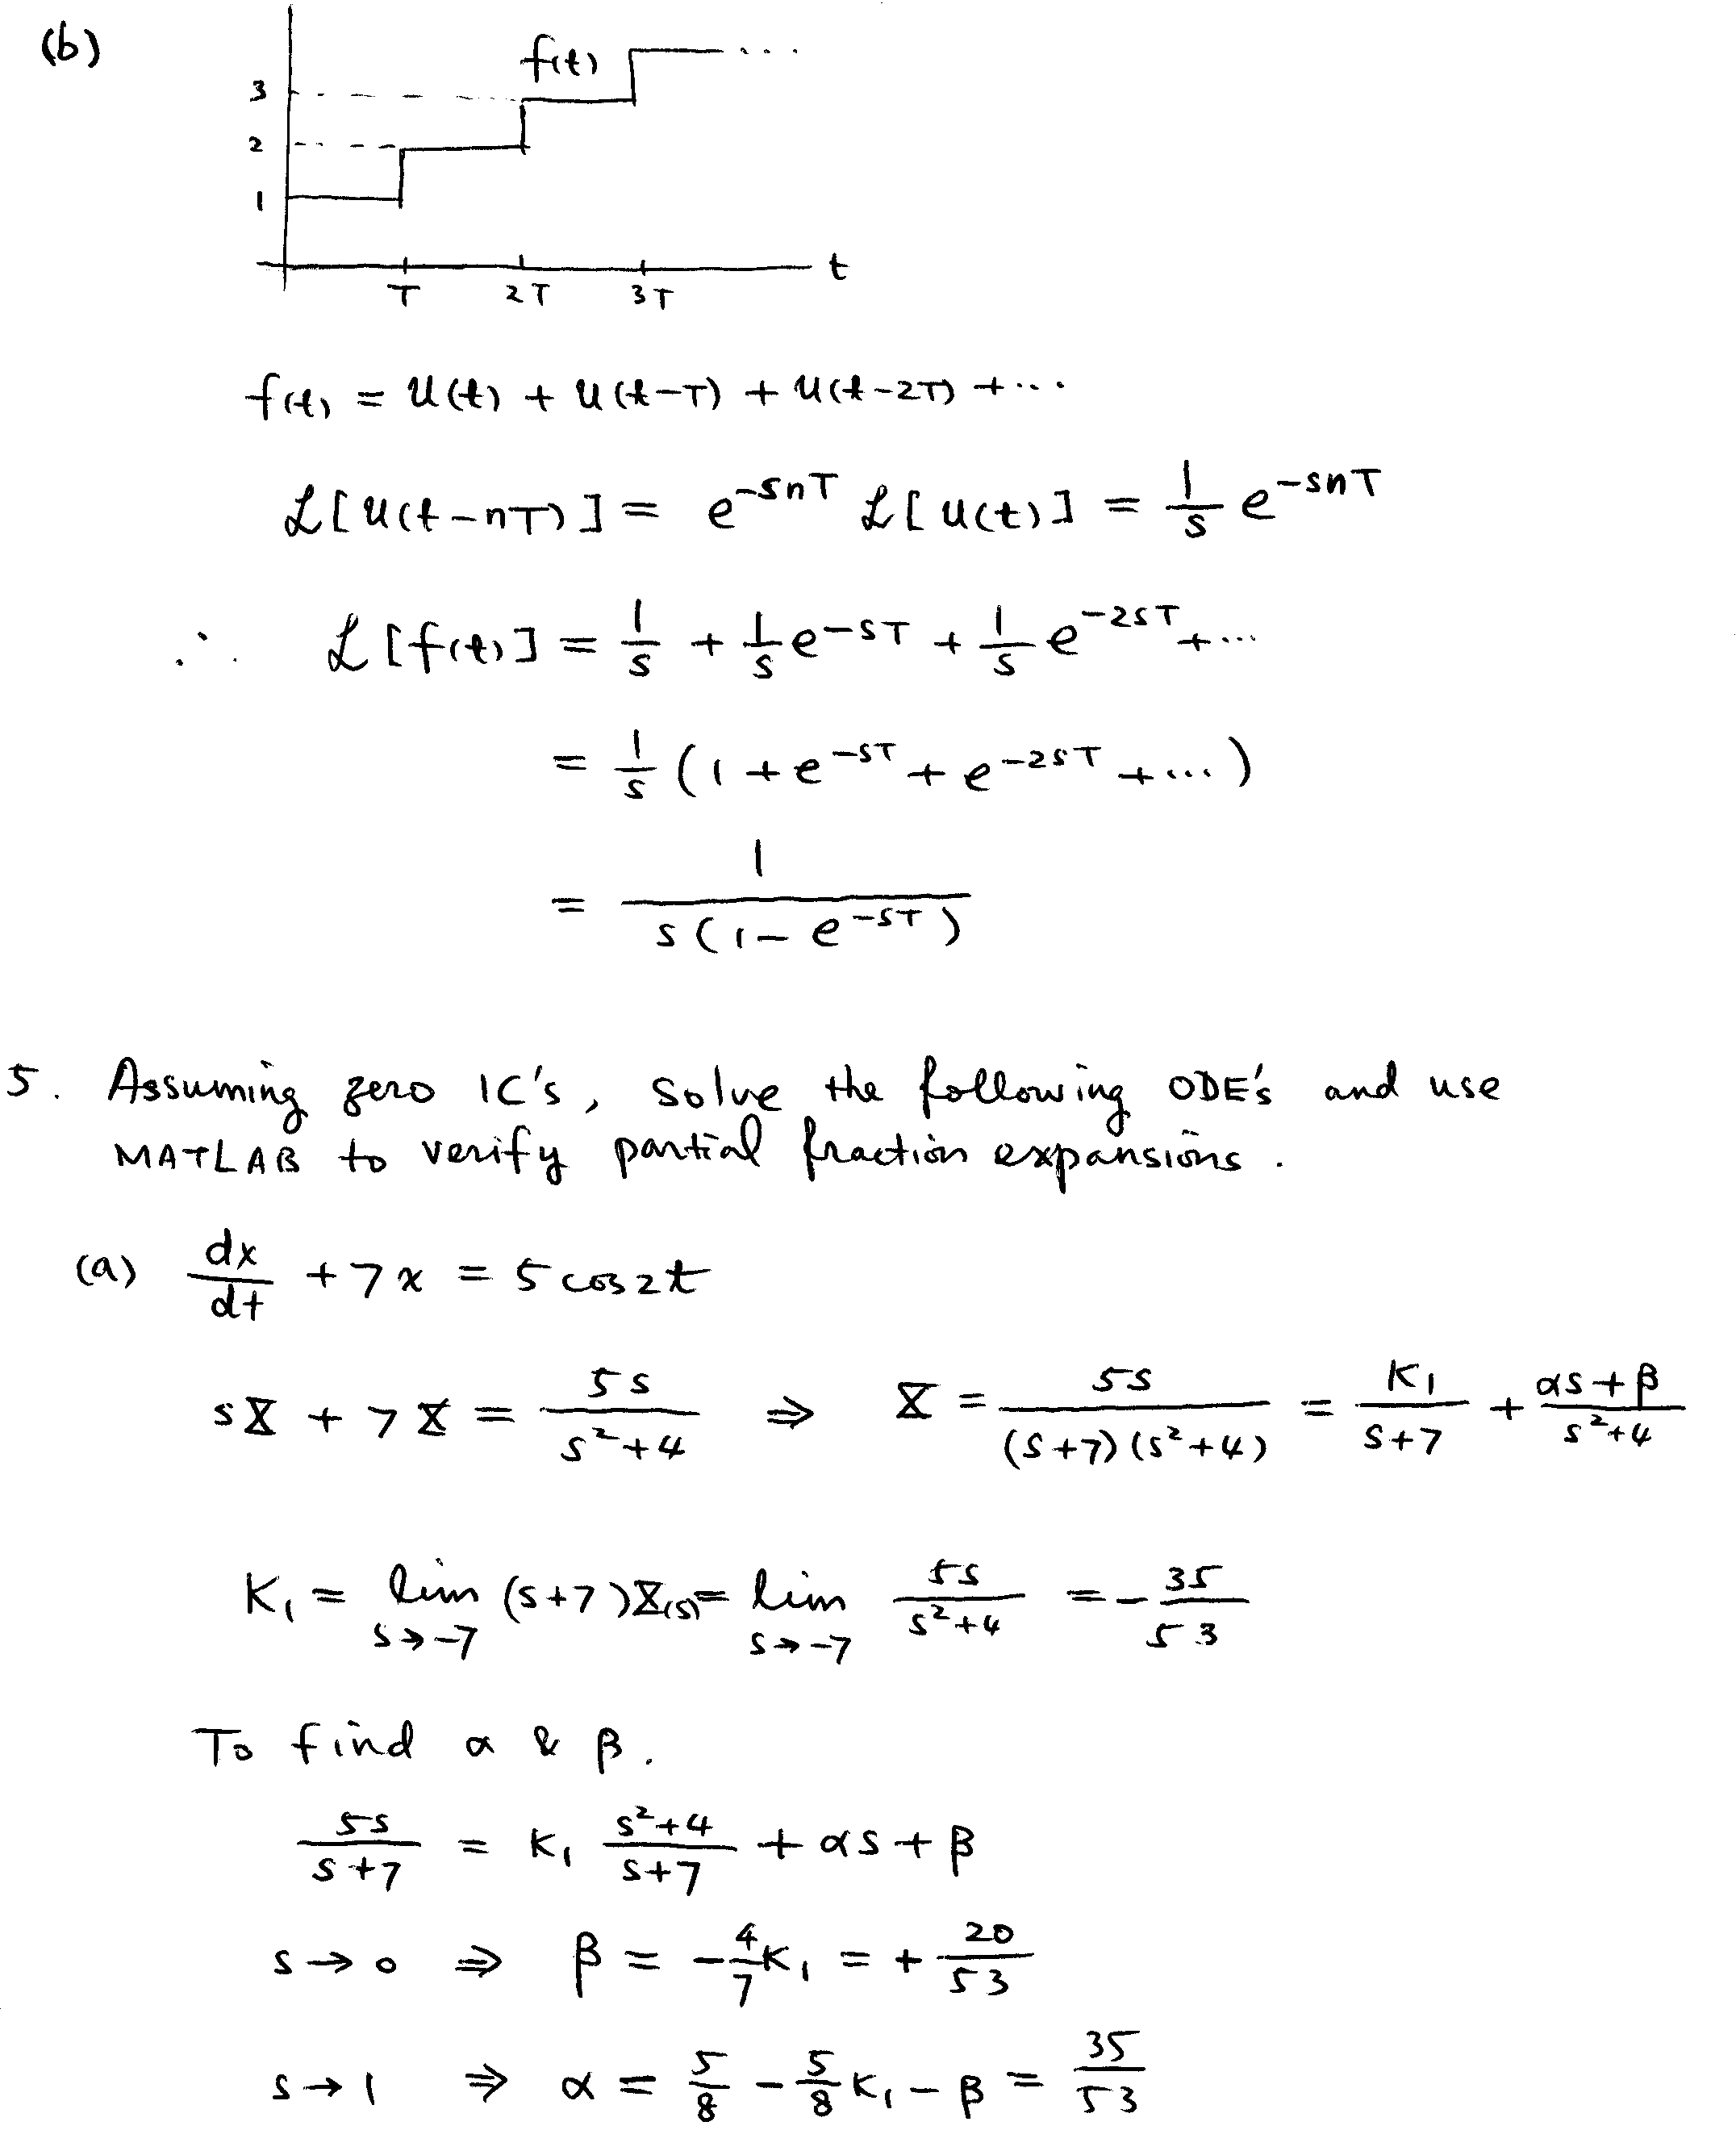 (b)
f(t)
3
2
1
t
T 2T 3T
f(t) = u(t) + u(t-T) + u(t-2T) + ...
ℒ[u(t-nT)] = e^{-snT} ℒ[u(t)] = 1/s e^{-snT}
∴ ℒ[f(t)] = 1/s + 1/s e^{-sT} + 1/s e^{-2sT} + ...
= 1/s (1 + e^{-sT} + e^{-2sT} + ...)
= 1/(s(1 - e^{-sT}))
5. Assuming zero IC's, solve the following ODE's and use
MATLAB to verify partial fraction expansions.
(a) dx/dt + 7x = 5 cos 2t
sX + 7X = 5s/(s²+4) ⇒ X = 5s/((s+7)(s²+4)) = K₁/(s+7) + (αs+β)/(s²+4)
K₁ = lim_{s→-7} (s+7)X(s) = lim_{s→-7} 5s/(s²+4) = -35/53
To find α & β.
5s/(s+7) = K₁ (s²+4)/(s+7) + αs + β
s→0 ⇒ β = -4/7 K₁ = + 20/53
s→1 ⇒ α = 5/8 - 5/8 K₁ - β = 35/53